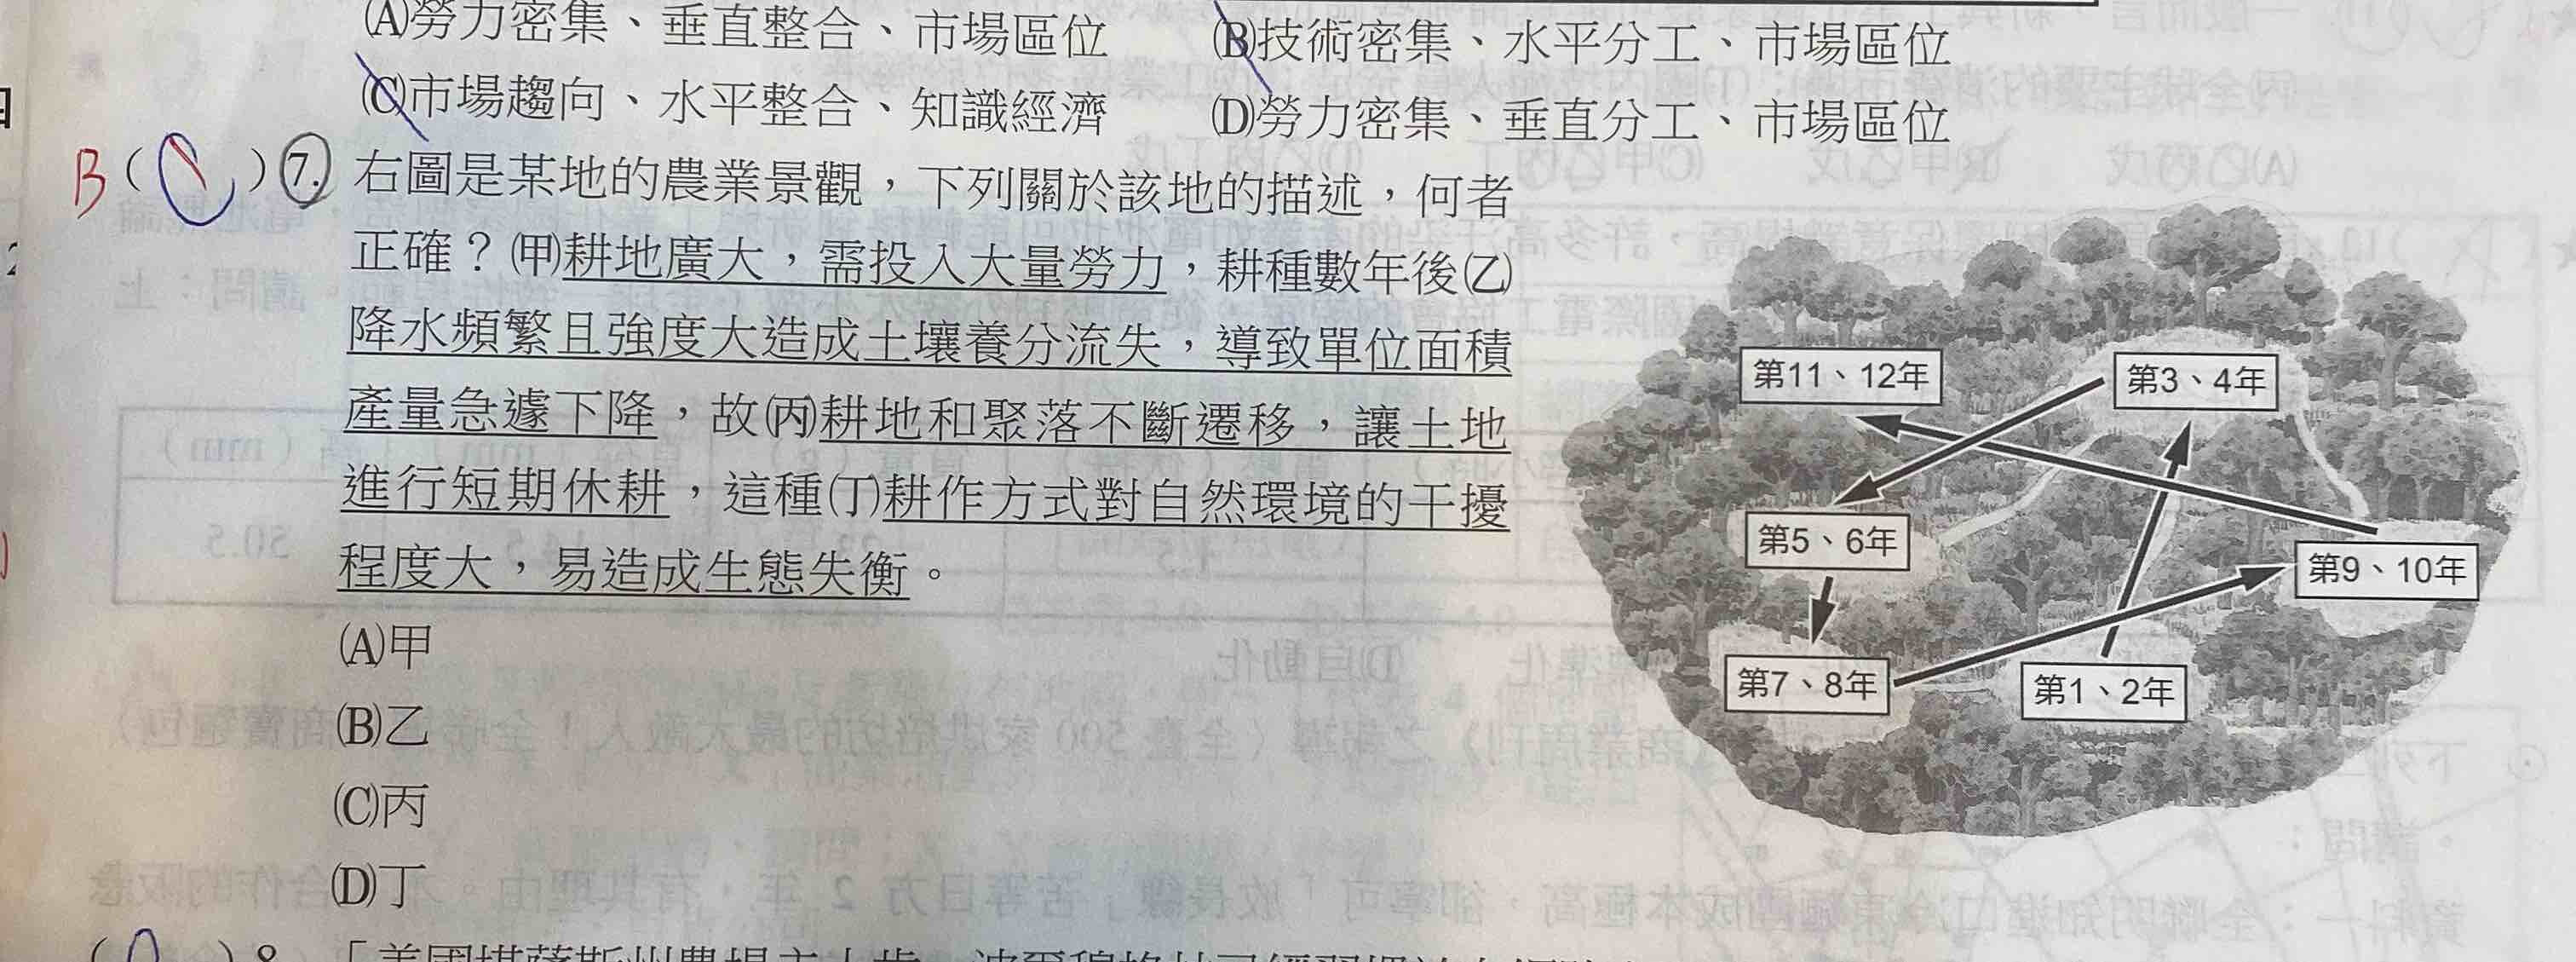 (A)勞力密集、垂直整合、市場區位
(B)技術密集、水平分工、市場區位
(C)市場趨向、水平整合、知識經濟
(D)勞力密集、垂直分工、市場區位
B( )7. 右圖是某地的農業景觀，下列關於該地的描述，何者
正確？(甲)耕地廣大，需投入大量勞力，耕種數年後(乙)
降水頻繁且強度大造成土壤養分流失，導致單位面積
產量急遽下降，故(丙)耕地和聚落不斷遷移，讓土地
進行短期休耕，這種(丁)耕作方式對自然環境的干擾
程度大，易造成生態失衡。
(A)甲
(B)乙
(C)丙
(D)丁
第11、12年
第3、4年
第5、6年
第9、10年
第7、8年
第1、2年